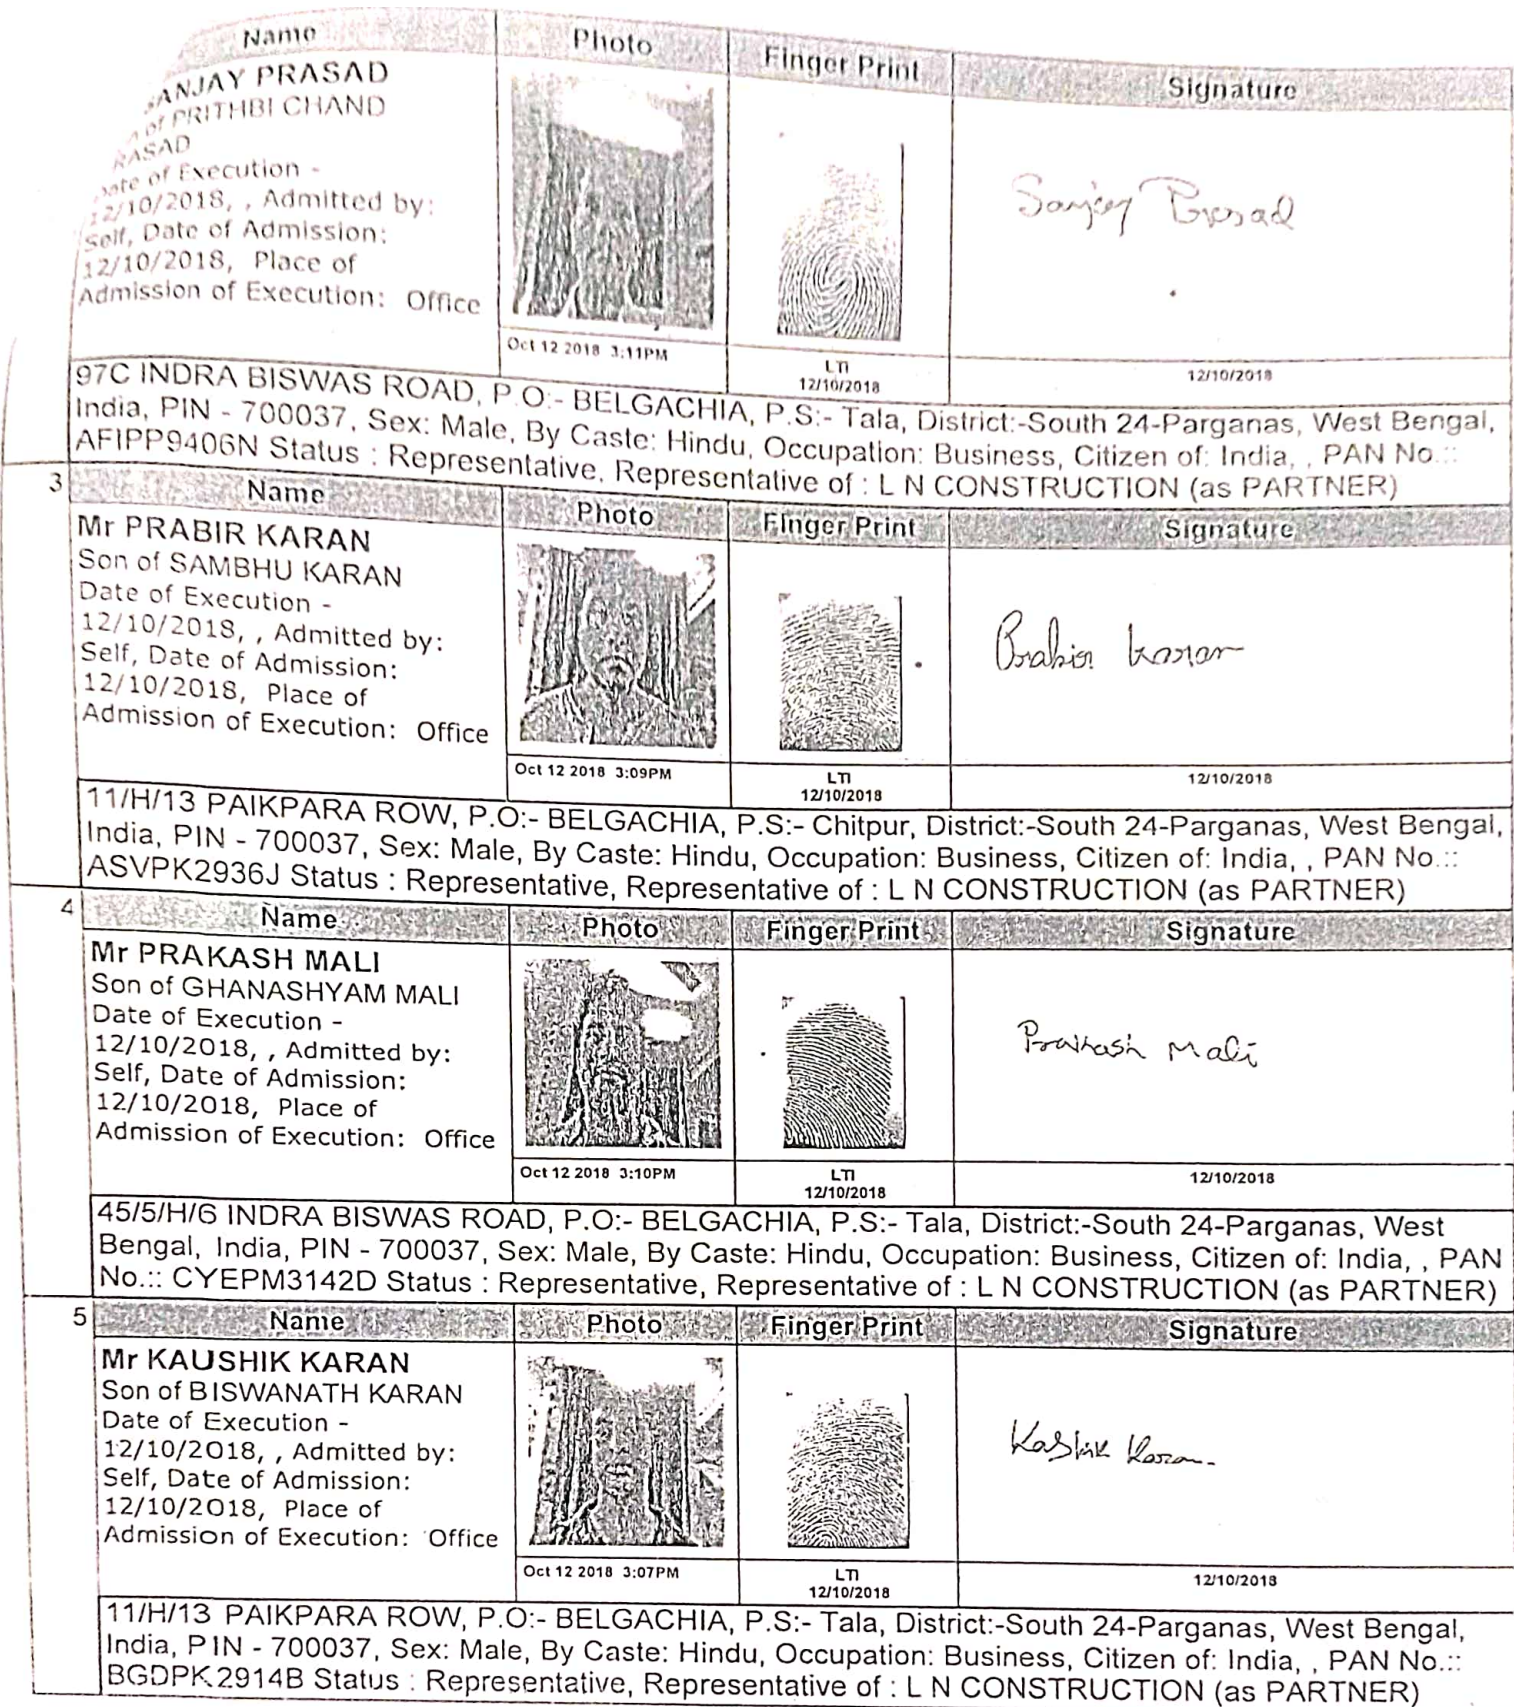 Name Photo Finger Print Signature
SANJAY PRASAD
of PRITHBI CHAND
PRASAD
Date of Execution -
12/10/2018, , Admitted by:
Self, Date of Admission:
12/10/2018, Place of
Admission of Execution: Office
Sanjay Prasad
Oct 12 2018 3:11PM
LTI
12/10/2018
12/10/2018
97C INDRA BISWAS ROAD, P.O:- BELGACHIA, P.S:- Tala, District:-South 24-Parganas, West Bengal,
India, PIN - 700037, Sex: Male, By Caste: Hindu, Occupation: Business, Citizen of: India, , PAN No.::
AFIPP9406N Status : Representative, Representative of : L N CONSTRUCTION (as PARTNER)
3 Name Photo Finger Print Signature
Mr PRABIR KARAN
Son of SAMBHU KARAN
Date of Execution -
12/10/2018, , Admitted by:
Self, Date of Admission:
12/10/2018, Place of
Admission of Execution: Office
Prabir Karan
Oct 12 2018 3:09PM
LTI
12/10/2018
12/10/2018
11/H/13 PAIKPARA ROW, P.O:- BELGACHIA, P.S:- Chitpur, District:-South 24-Parganas, West Bengal,
India, PIN - 700037, Sex: Male, By Caste: Hindu, Occupation: Business, Citizen of: India, , PAN No.::
ASVPK2936J Status : Representative, Representative of : L N CONSTRUCTION (as PARTNER)
4 Name Photo Finger Print Signature
Mr PRAKASH MALI
Son of GHANASHYAM MALI
Date of Execution -
12/10/2018, , Admitted by:
Self, Date of Admission:
12/10/2018, Place of
Admission of Execution: Office
Prakash Mali
Oct 12 2018 3:10PM
LTI
12/10/2018
12/10/2018
45/5/H/6 INDRA BISWAS ROAD, P.O:- BELGACHIA, P.S:- Tala, District:-South 24-Parganas, West
Bengal, India, PIN - 700037, Sex: Male, By Caste: Hindu, Occupation: Business, Citizen of: India, , PAN
No.:: CYEPM3142D Status : Representative, Representative of : L N CONSTRUCTION (as PARTNER)
5 Name Photo Finger Print Signature
Mr KAUSHIK KARAN
Son of BISWANATH KARAN
Date of Execution -
12/10/2018, , Admitted by:
Self, Date of Admission:
12/10/2018, Place of
Admission of Execution: Office
Kaushik Karan
Oct 12 2018 3:07PM
LTI
12/10/2018
12/10/2018
11/H/13 PAIKPARA ROW, P.O:- BELGACHIA, P.S:- Tala, District:-South 24-Parganas, West Bengal,
India, PIN - 700037, Sex: Male, By Caste: Hindu, Occupation: Business, Citizen of: India, , PAN No.::
BGDPK2914B Status : Representative, Representative of : L N CONSTRUCTION (as PARTNER)